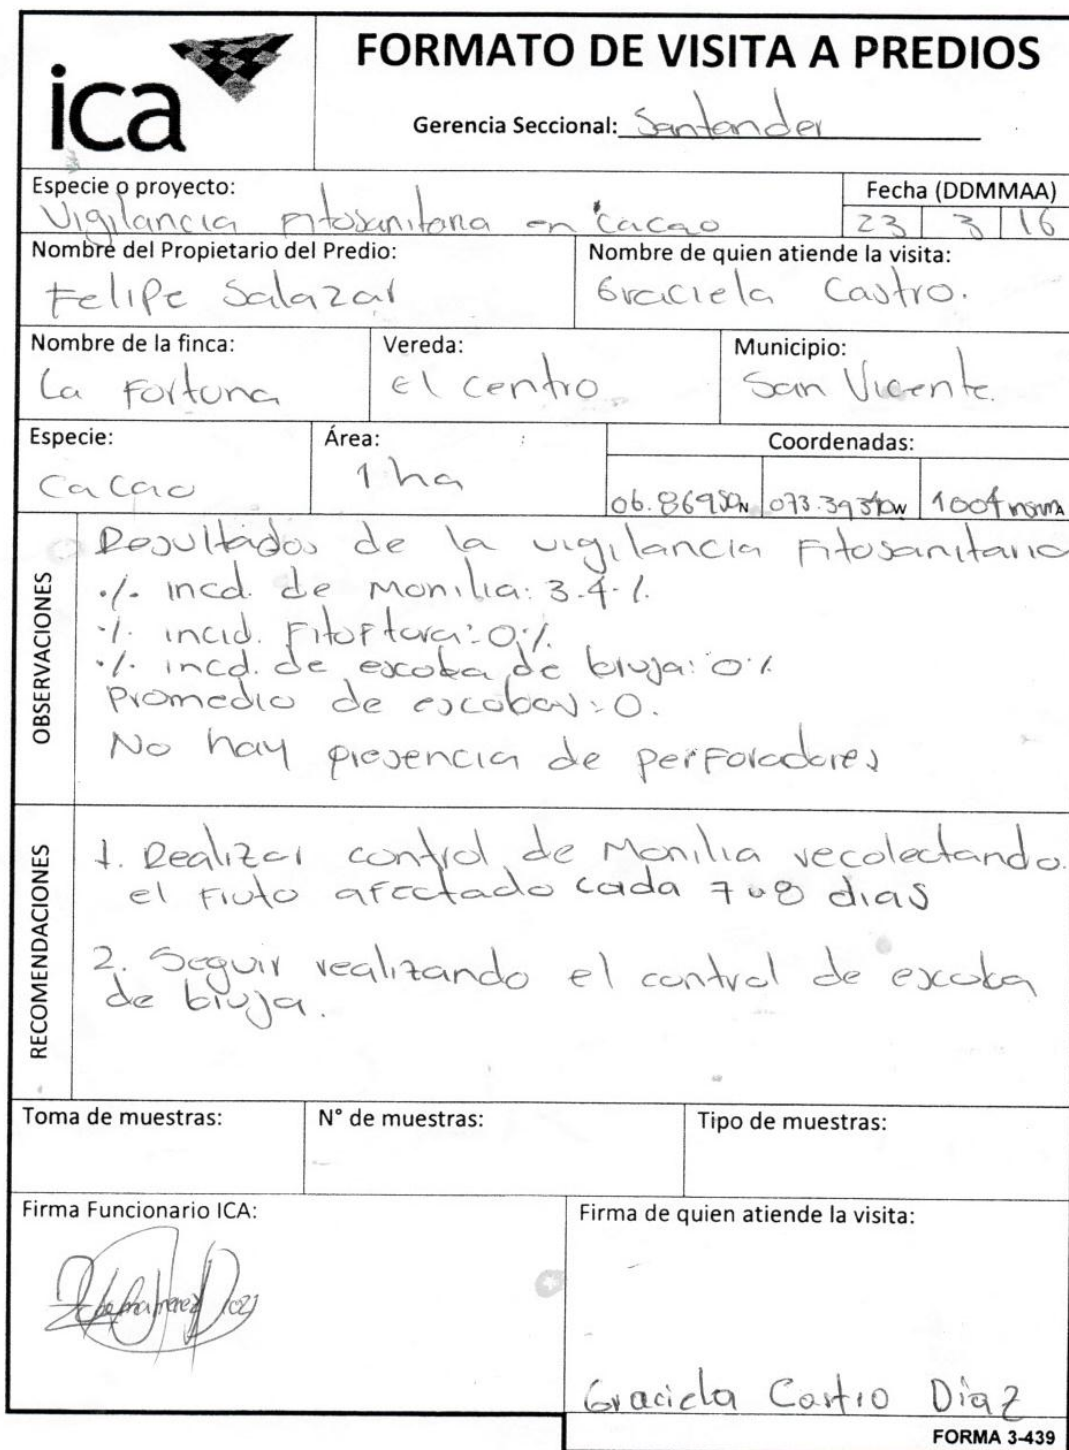 ica
FORMATO DE VISITA A PREDIOS
Gerencia Seccional: Santander
Especie o proyecto:
Vigilancia Fitosanitaria en Cacao
Fecha (DDMMAA)
23 3 16
Nombre del Propietario del Predio:
Felipe Salazar
Nombre de quien atiende la visita:
Graciela Castro.
Nombre de la finca:
La Fortuna
Vereda:
El centro
Municipio:
San Vicente.
Especie:
Cacao
Área:
1 ha
Coordenadas:
OBSERVACIONES
Resultados de la vigilancia Fitosanitaria
% incd. de Monilia: 3.4%
% incid. Fitoftora: 0%
% incd. de escoba de bruja: 0%
Promedio de escobas: 0.
No hay presencia de perforadores
RECOMENDACIONES
1. Realizar control de Monilia recolectando
el fruto afectado cada 7 u 8 dias
2. Seguir realizando el control de escoba
de bruja.
Toma de muestras:
N° de muestras:
Tipo de muestras:
Firma Funcionario ICA:
Firma de quien atiende la visita:
Graciela Castro Diaz
FORMA 3-439